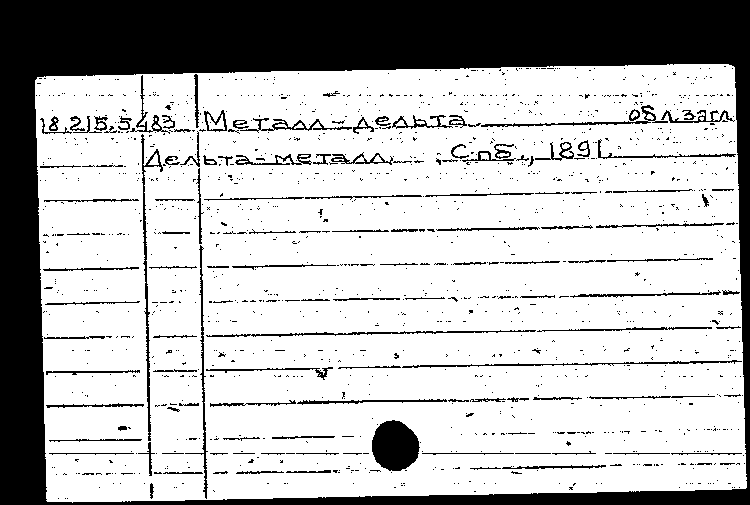 18.215.5.483 Металл-дельта обл.загл
Дельта-металл. Спб., 1891.